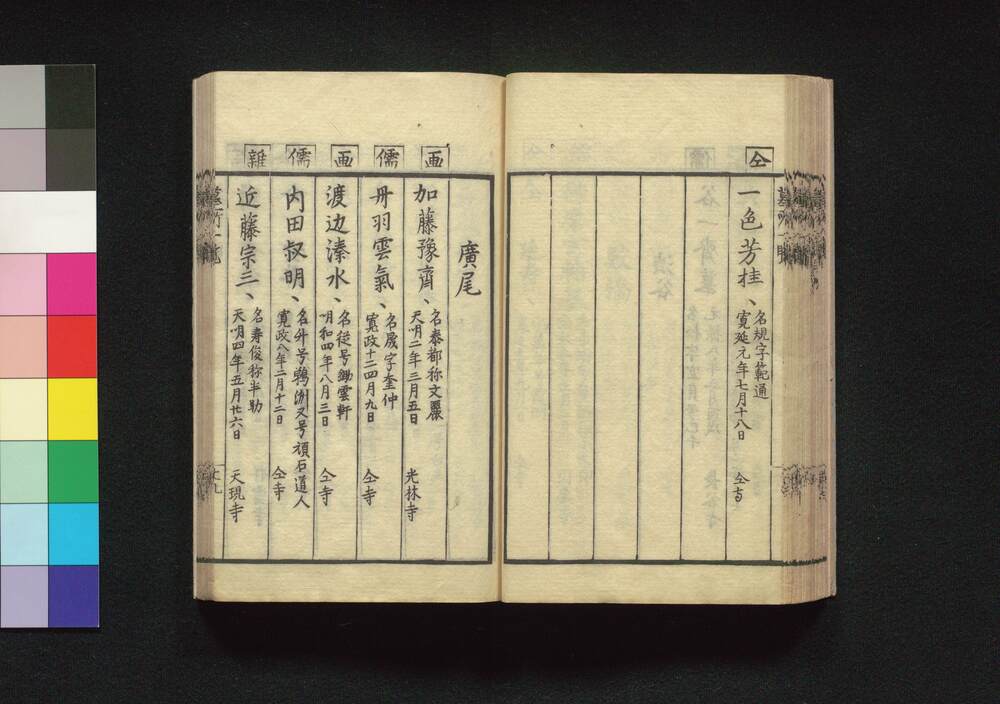 仝
一色芳桂、
名規字範通
寛延元年七月十八日
仝寺
廣尾
画
加藤豫齊、
名泰都称文麗
天明二年三月五日
光林寺
儒
丹羽雲氣、
名晟字奎仲
寛政十二四月九日
仝寺
画
渡辺溱水、
名徒号鋤雲軒
明和四年八月三日
仝寺
儒
内田叔明、
又号頑石道人
寛政八年二月十二日
仝寺
雜
近藤宗三、
名寿俊称半助
天明四年五月廿六日
天現寺